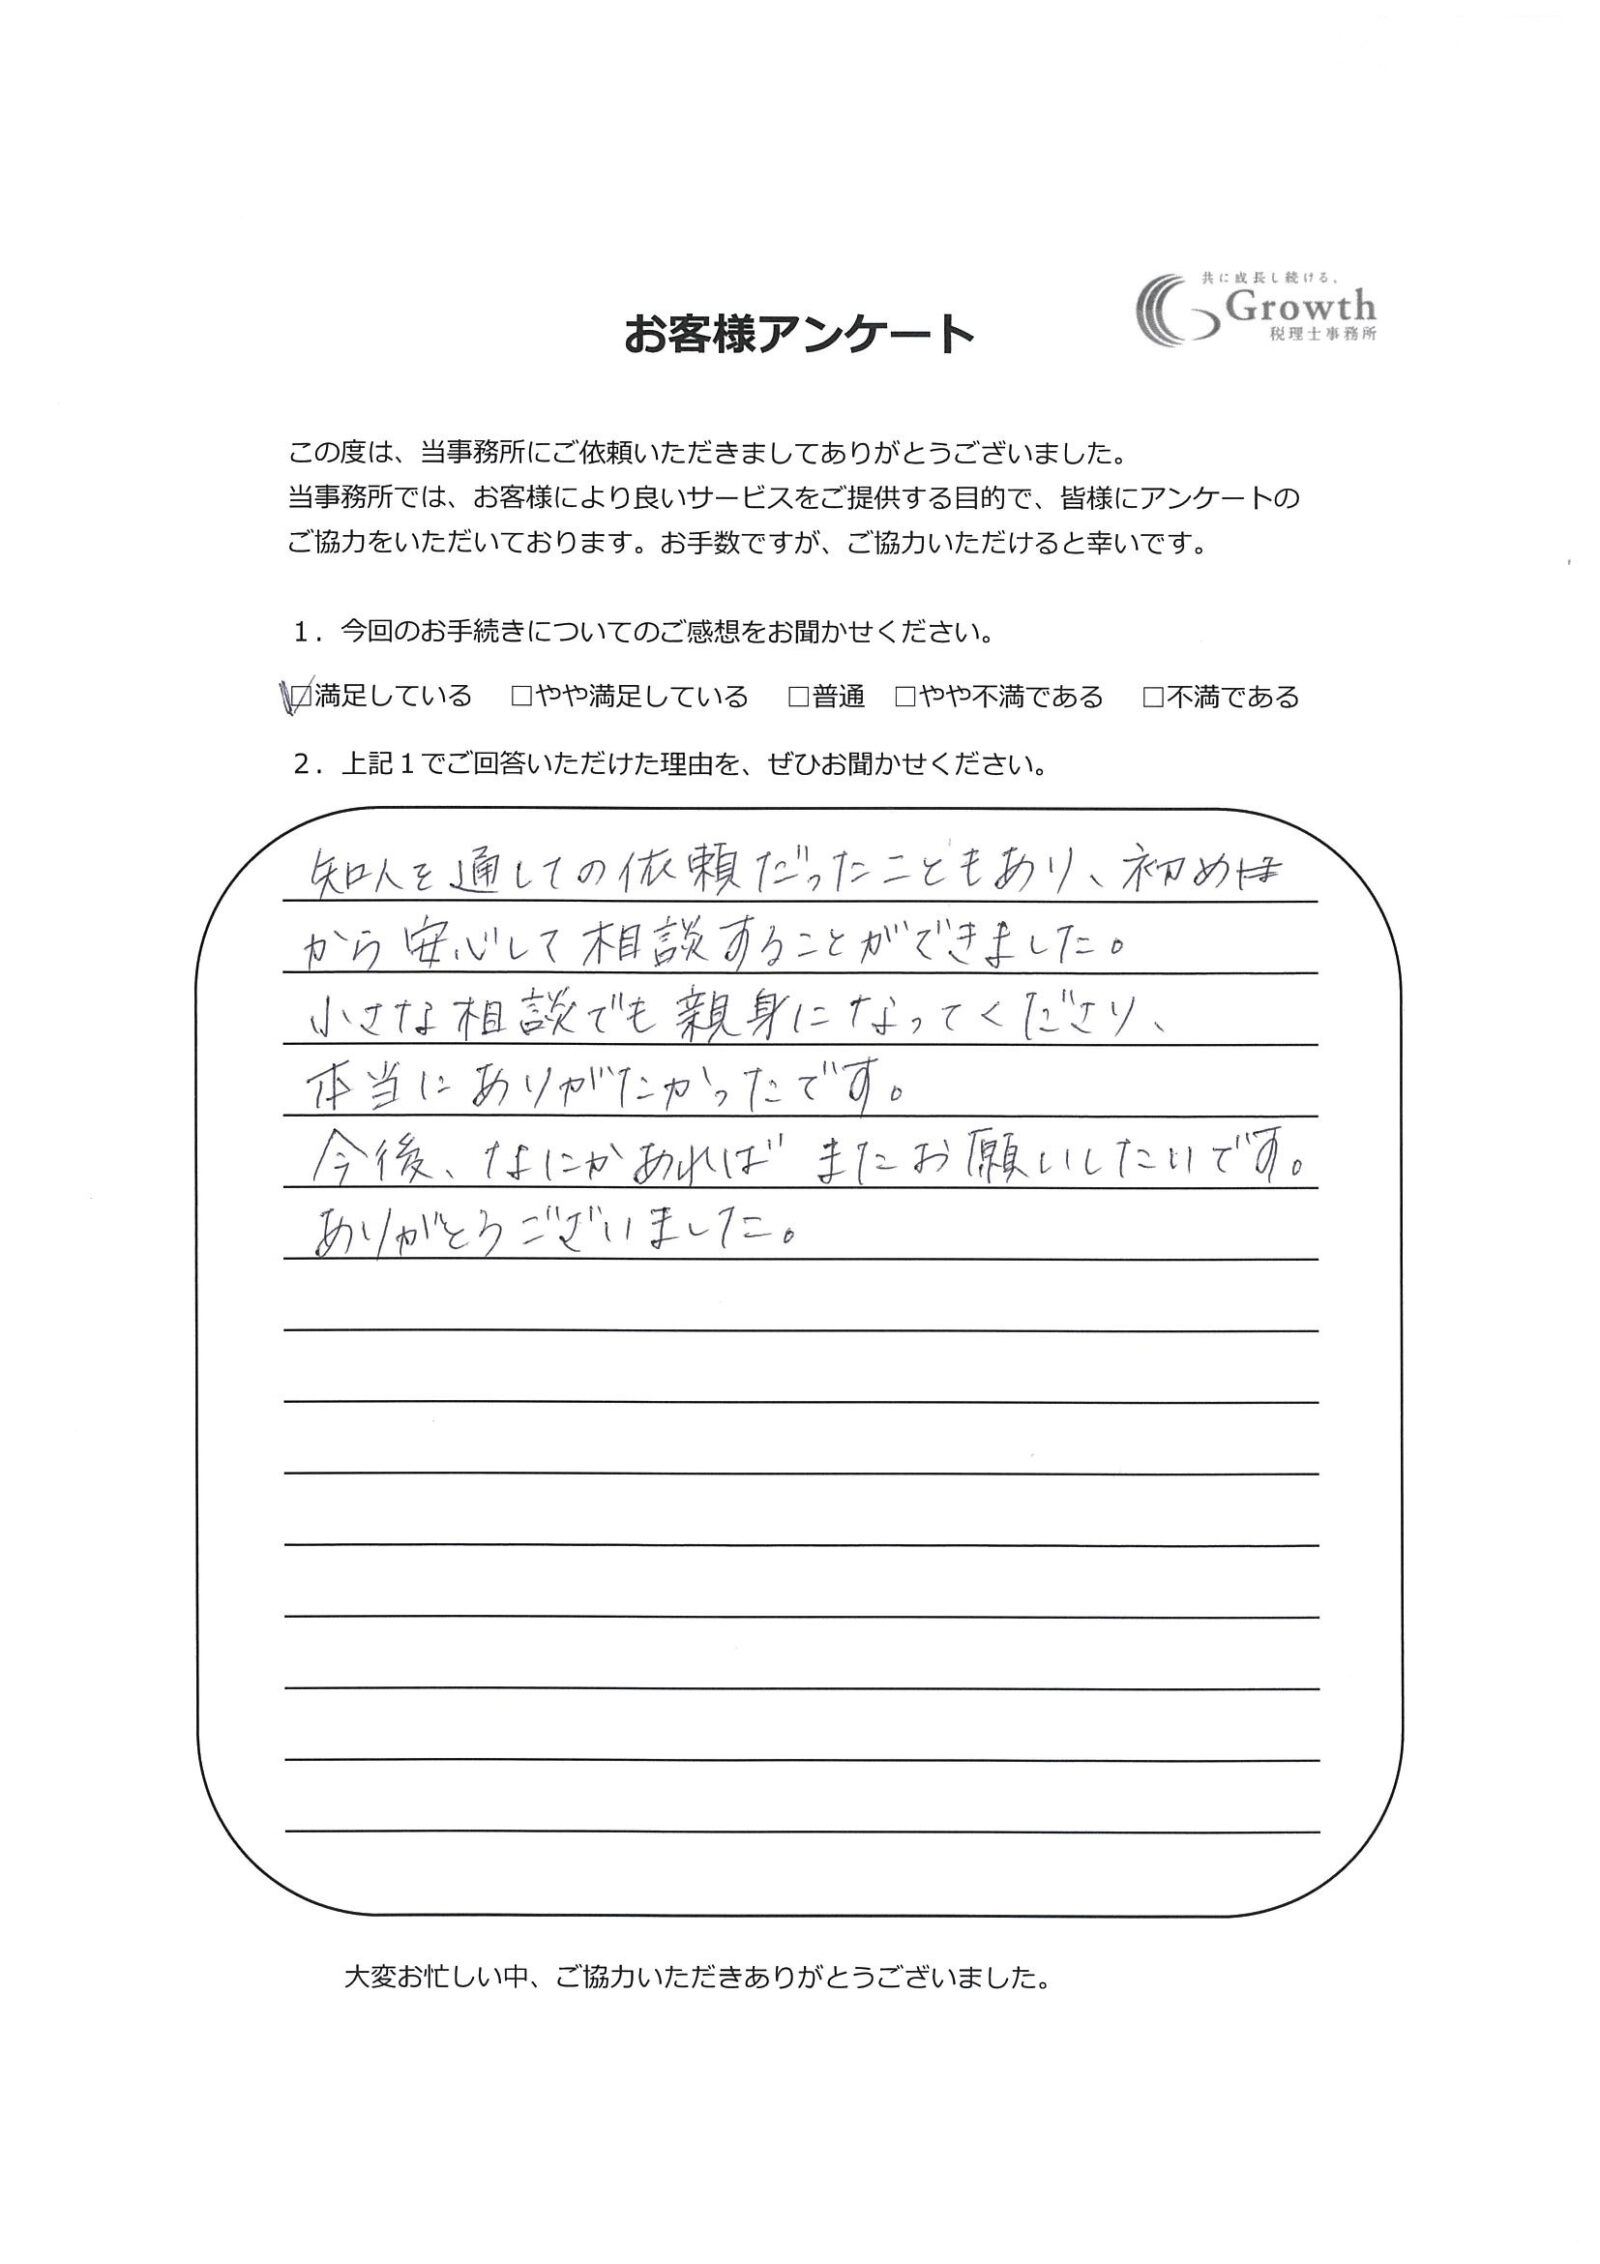 共に成長し続ける、
Growth
税理士事務所
お客様アンケート
この度は、当事務所にご依頼いただきましてありがとうございました。
当事務所では、お客様により良いサービスをご提供する目的で、皆様にアンケートの
ご協力をいただいております。お手数ですが、ご協力いただけると幸いです。
１．今回のお手続きについてのご感想をお聞かせください。
☑満足している　□やや満足している　□普通　□やや不満である　□不満である
２．上記１でご回答いただけた理由を、ぜひお聞かせください。
知人を通しての依頼だったこともあり、初め
から安心して相談することができました。
小さな相談でも親身になってくださり、
本当にありがたかったです。
今後、なにかあればまたお願いしたいです。
ありがとうございました。
大変お忙しい中、ご協力いただきありがとうございました。